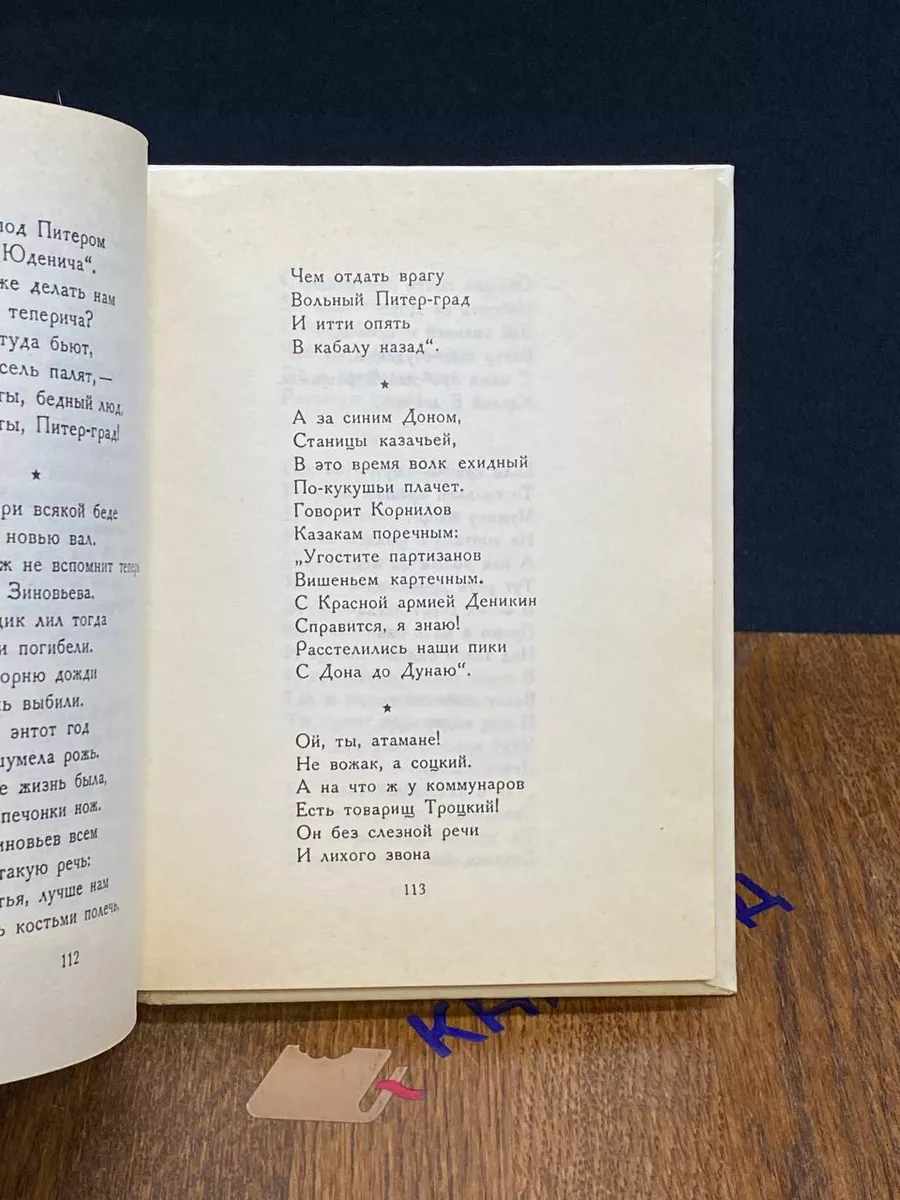 под Питером
Юденича“.
же делать нам
теперича?
туда бьют,
сель палят,—
ты, бедный люд,
ты, Питер-град!
★
ри всякой беде
новью вал.
ж не вспомнит теперь
Зиновьева.
щик лил тогда
и погибели.
орню дожди
ь выбили.
энтот год
шумела рожь.
е жизнь была,
печонки нож.
иновьев всем
такую речь:
тья, лучше нам
ь костьми полечь,
112
Чем отдать врагу
Вольный Питер-град
И итти опять
В кабалу назад“.
★
А за синим Доном,
Станицы казачьей,
В это время волк ехидный
По-кукушьи плачет.
Говорит Корнилов
Казакам поречным:
„Угостите партизанов
Вишеньем картечным.
С Красной армией Деникин
Справится, я знаю!
Расстелились наши пики
С Дона до Дунаю“.
★
Ой, ты, атамане!
Не вожак, а соцкий.
А на что ж у коммунаров
Есть товарищ Троцкий!
Он без слезной речи
И лихого звона
113